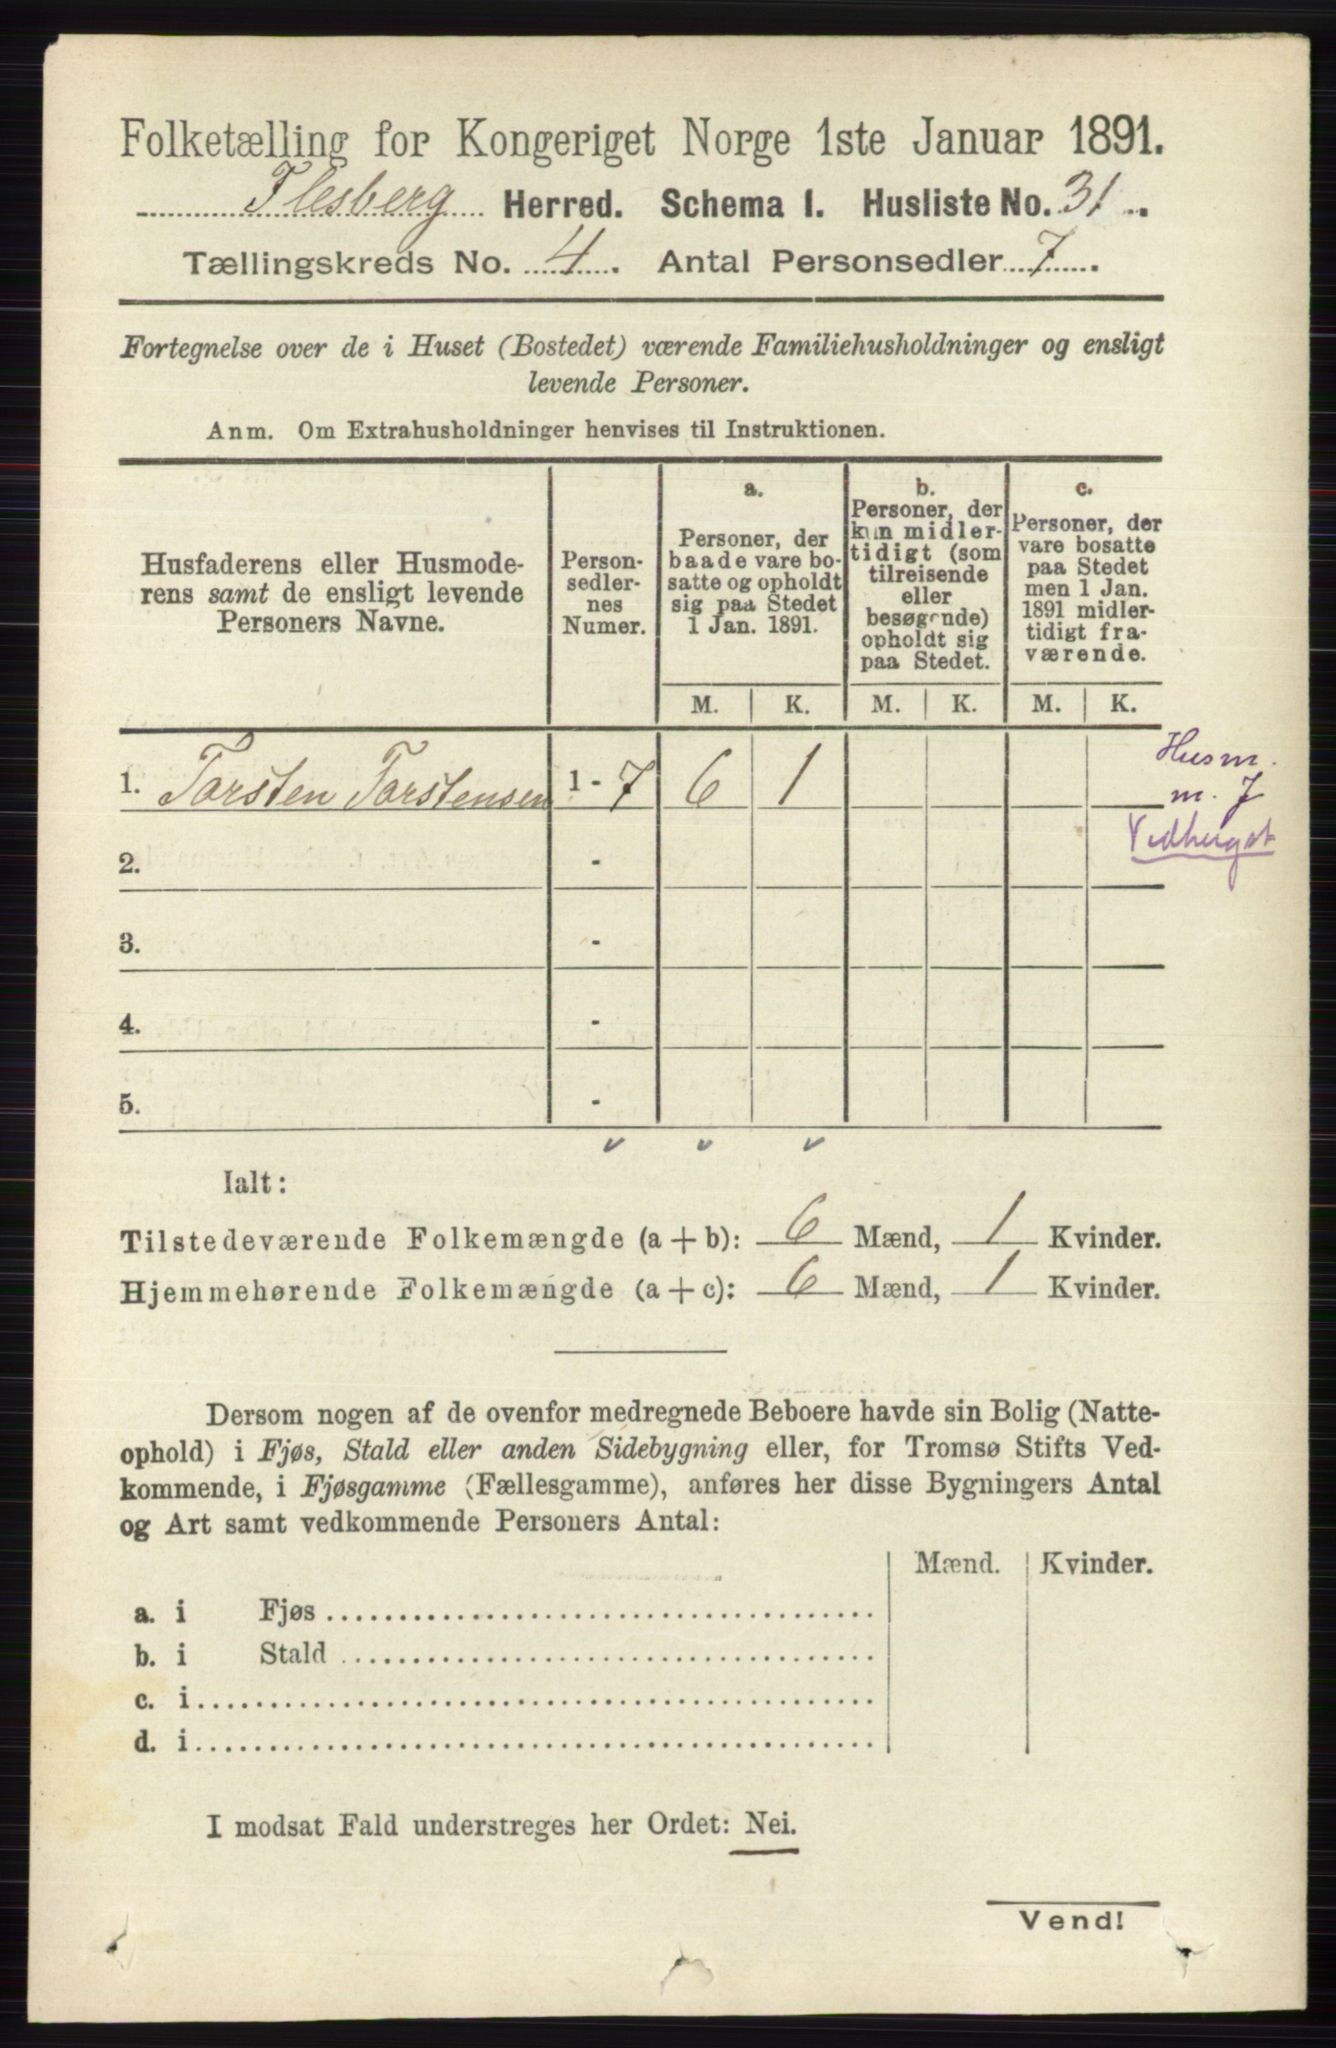 Folketælling for Kongeriget Norge 1ste Januar 1891.
Flesberg Herred. Schema 1. Husliste No. 31.
Tællingskreds No. 4. Antal Personsedler 7.
Fortegnelse over de i Huset (Bostedet) værende Familiehusholdninger og ensligt
levende Personer.
Anm. Om Extrahusholdninger henvises til Instruktionen.
Husfaderens eller Husmode-
rens samt de ensligt levende
Personers Navne.
Person-
sedler-
nes
Numer.
a.
Personer, der
baade vare bo-
satte og opholdt
sig paa Stedet
1 Jan. 1891.
b.
Personer, der
kun midler-
tidigt (som
tilreisende
eller
besøgende)
opholdt sig
paa Stedet.
c.
Personer, der
vare bosatte
paa Stedet
men 1 Jan.
1891 midler-
tidigt fra-
værende.
M. K. M. K. M. K.
1. Torsten Torstensen 1 - 7 6 1
Husm.
m. J
2. -
3. -
4. -
5. -
Ialt:
Tilstedeværende Folkemængde (a + b): 6 Mænd, 1 Kvinder.
Hjemmehørende Folkemængde (a + c): 6 Mænd, 1 Kvinder.
Dersom nogen af de ovenfor medregnede Beboere havde sin Bolig (Natte-
ophold) i Fjøs, Stald eller anden Sidebygning eller, for Tromsø Stifts Ved-
kommende, i Fjøsgamme (Fællesgamme), anføres her disse Bygningers Antal
og Art samt vedkommende Personers Antal:
Mænd. Kvinder.
a. i Fjøs
b. i Stald
c. i
d. i
I modsat Fald understreges her Ordet: Nei.
Vend!